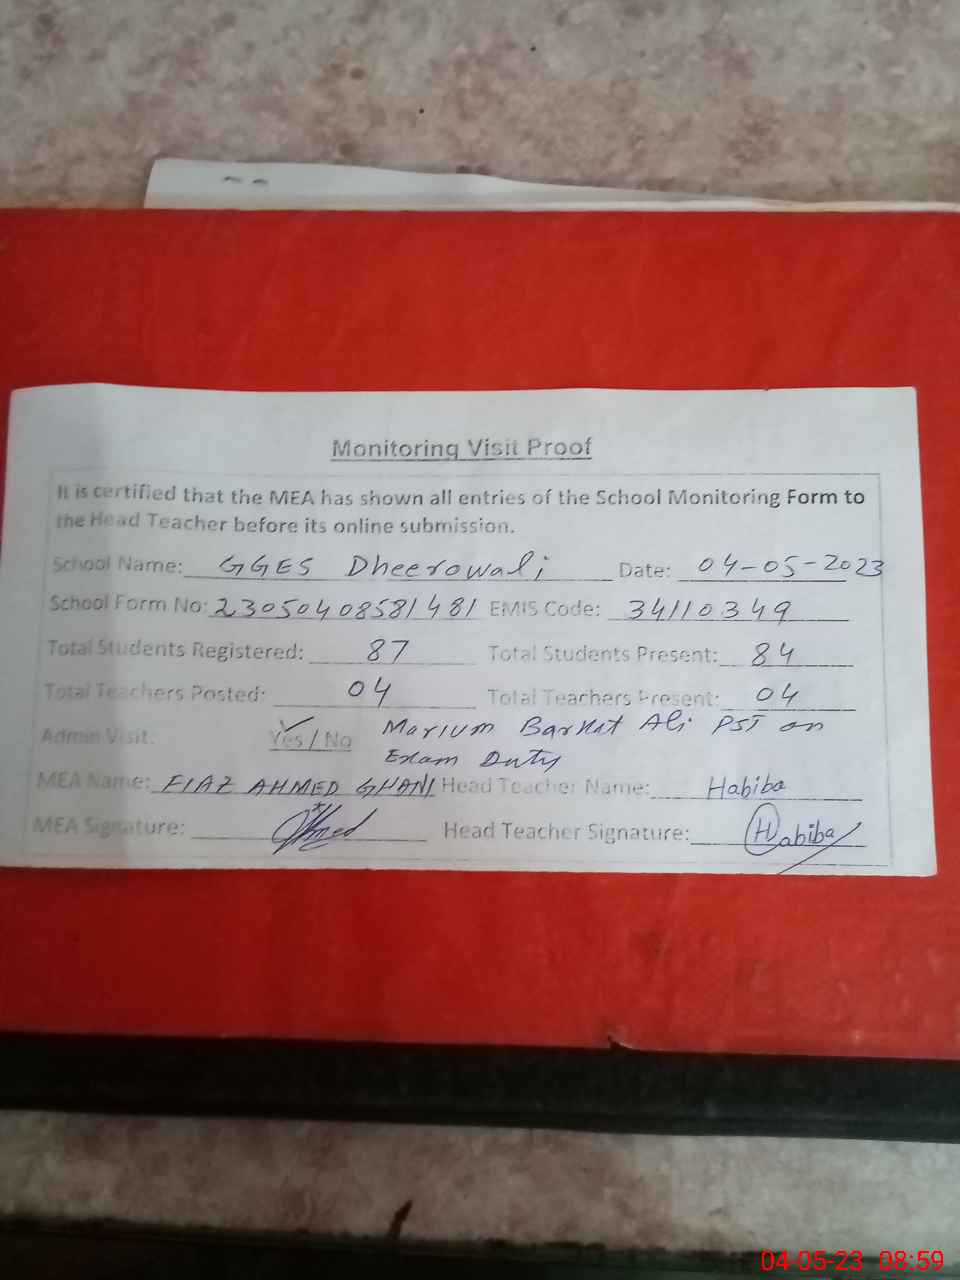 Monitoring Visit Proof
It is certified that the MEA has shown all entries of the School Monitoring Form to
the Head Teacher before its online submission.
School Name: GGES Dheerowali Date: 04-05-2023
School Form No: 23050408581481 EMIS Code: 34110349
Total Students Registered: 87 Total Students Present: 84
Total Teachers Posted: 04 Total Teachers Present: 04
Admin Visit: Yes / No Marium Barkat Ali PST on
Exam Duty
MEA Name: FIAZ AHMED GHANI Head Teacher Name: Habiba
MEA Signature: Ahmed Head Teacher Signature: Habiba
04-05-23 08:59